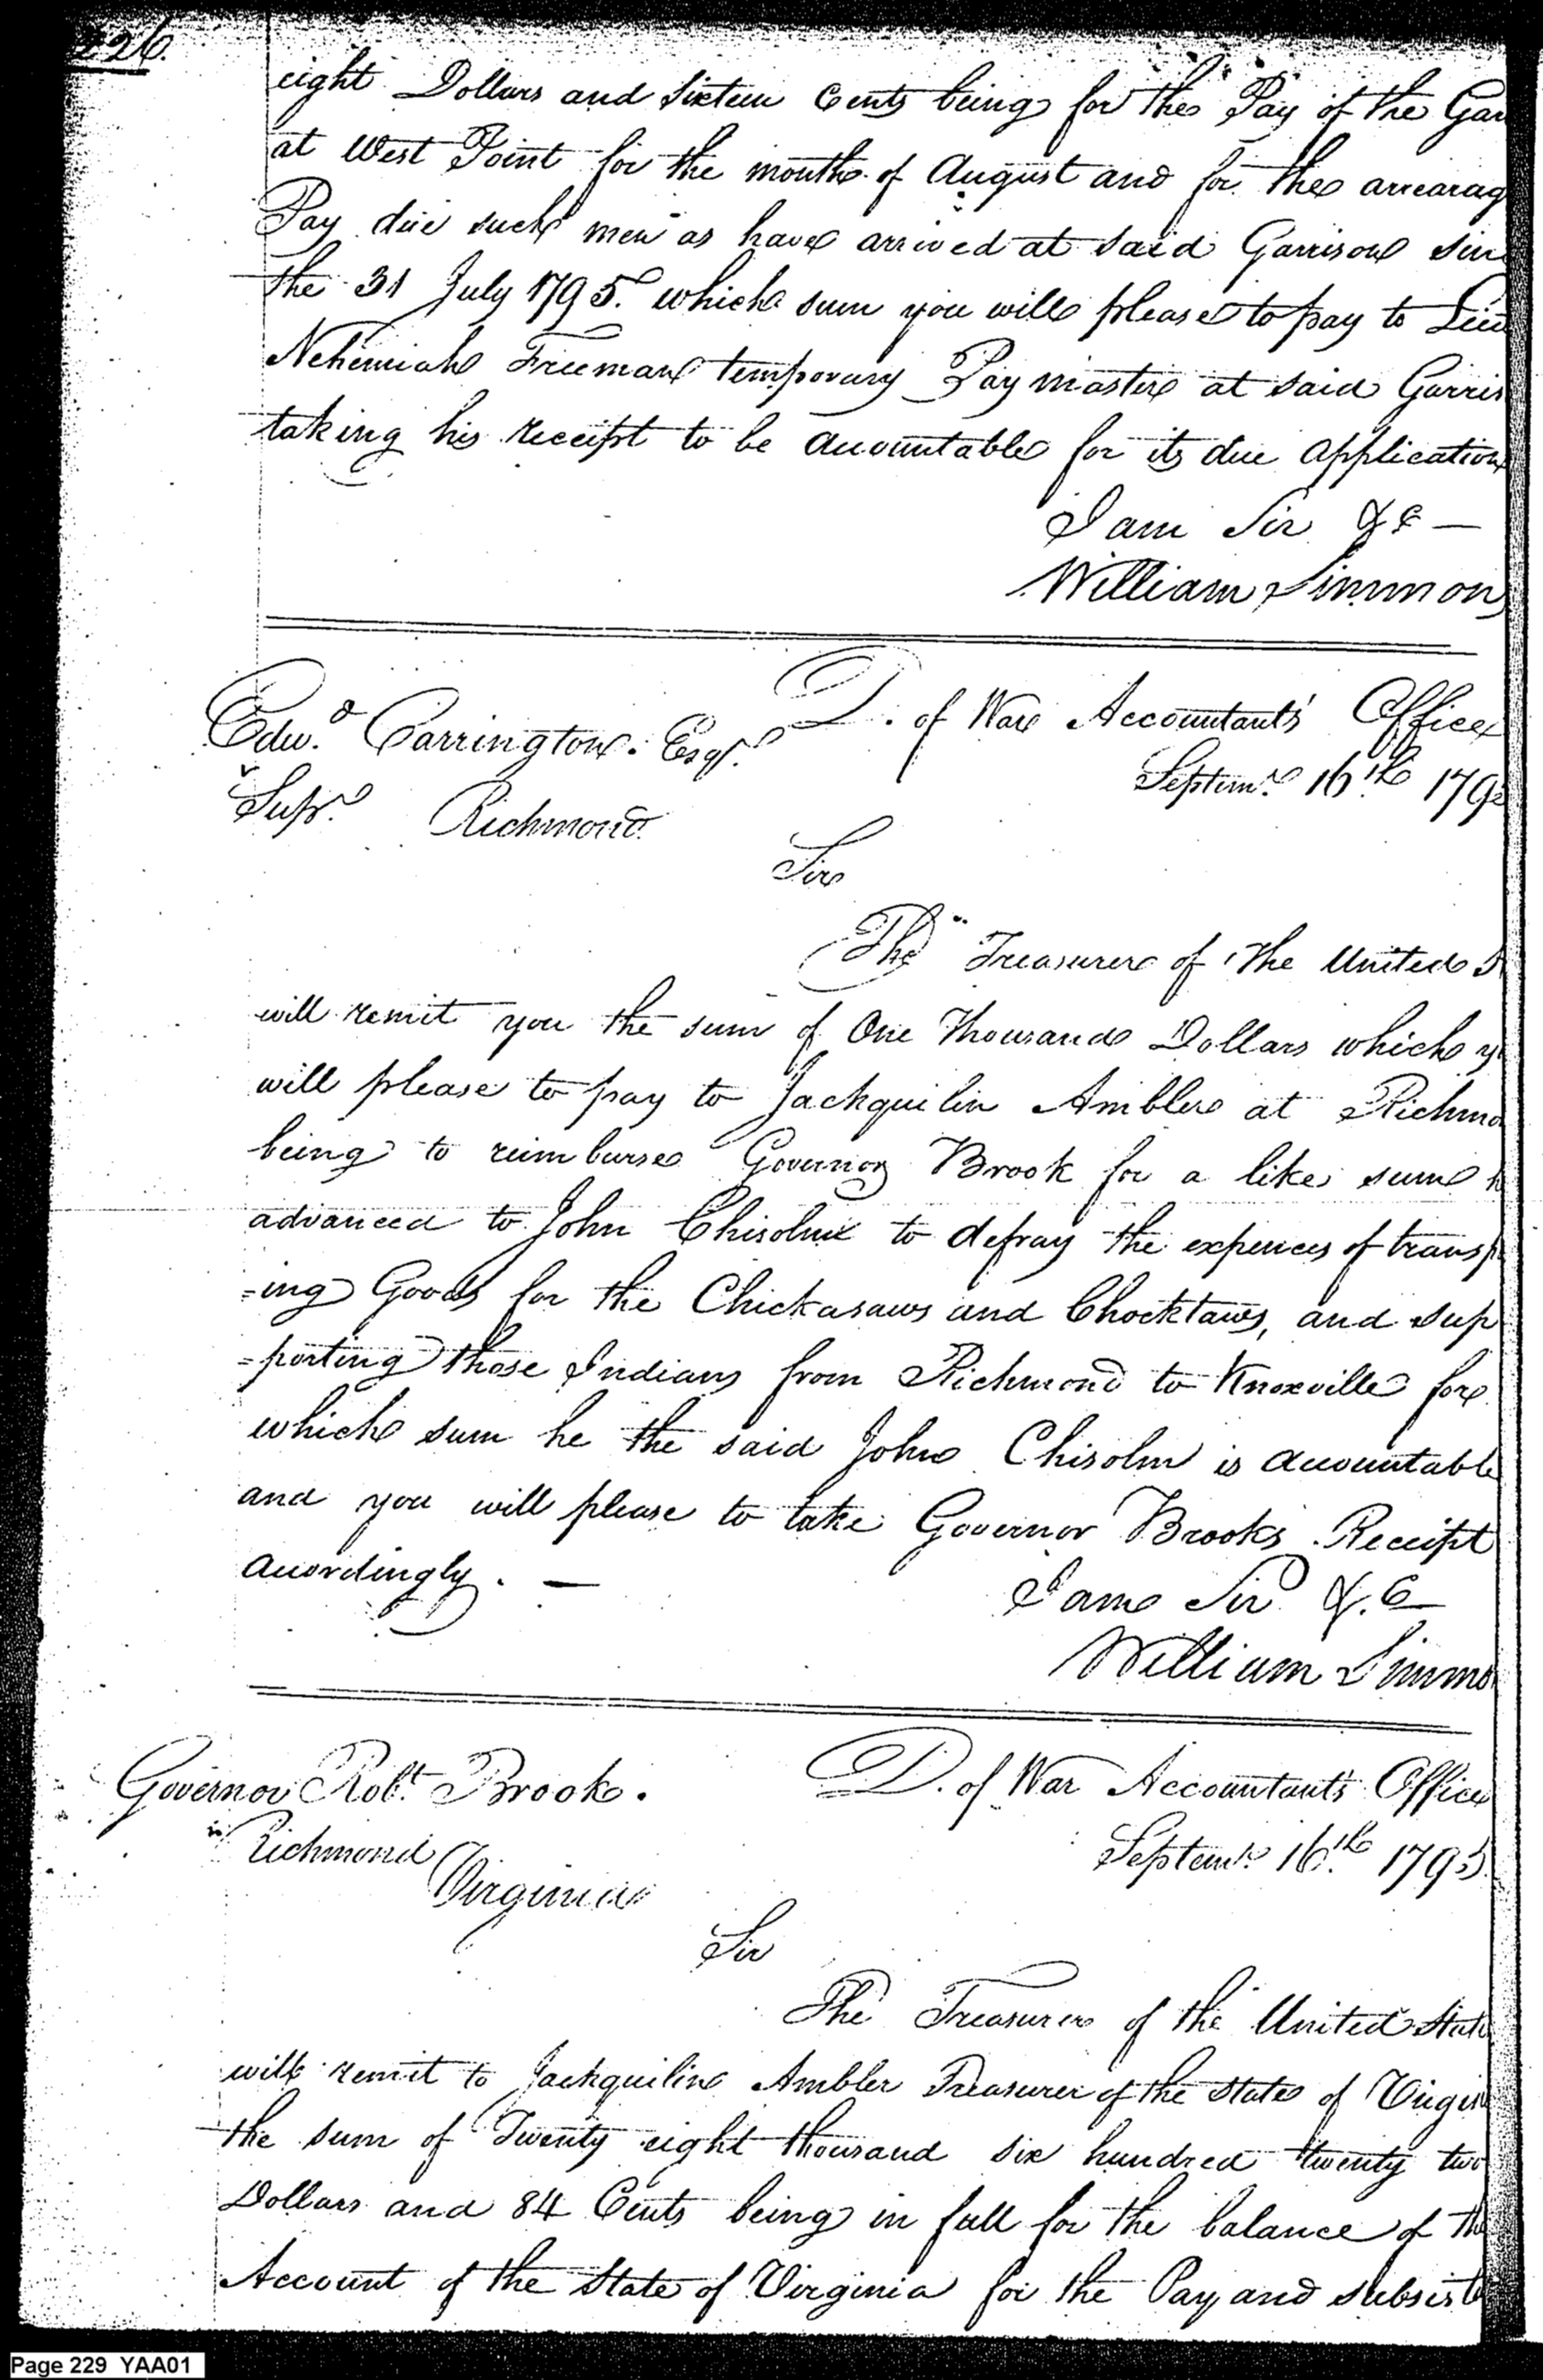 226.
eight Dollars and sixteen Cents being for the Pay of the Gar
at West Point for the month of August and for the arrearag
Pay due such men as have arrived at said Garrison sin
the 31 July 1795. which sum you will please to pay to Lieu
Nehemiah Freeman temporary Pay master at said Garris
taking his receipt to be accountable for its due application
I am Sir &c —
William Simmons
Edwd. Carrington. Esqr. D. of War Accountant's Office
Supr. Richmond Septemr. 16th 1795
Sir
The Treasurer of the United S
will remit you the sum of One Thousand Dollars which y
will please to pay to Jackquilin Ambler at Richmo
being to reimburse Governor Brook for a like sum h
advanced to John Chisolm to defray the expences of transp
=ing Goods for the Chickasaws and Chocktaws, and sup
=porting those Indians from Richmond to Knoxville for
which sum he the said John Chisolm is accountable
and you will please to take Governor Brooks Receipt
accordingly. —
I am Sir &.C
William Simmo
Governor Robt. Brook. D. of War Accountant's Office
Richmond Septemr. 16th 1795
Virginia
Sir
The Treasurer of the United State
will remit to Jackquilin Ambler Treasurer of the State of Virgin
the sum of Twenty eight thousand six hundred twenty two
Dollars and 84 Cents being in full for the balance of the
Account of the State of Virginia for the Pay and subsiste
Page 229 YAA01